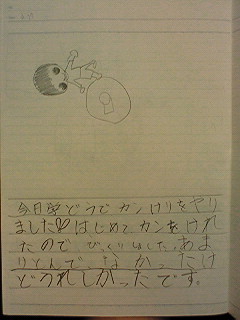 今日学どうでカンけりをやり
ました♡はじめてカンをけれ
たのでびっくりしました。あま
りとんでなかったけ
どうれしかったです。